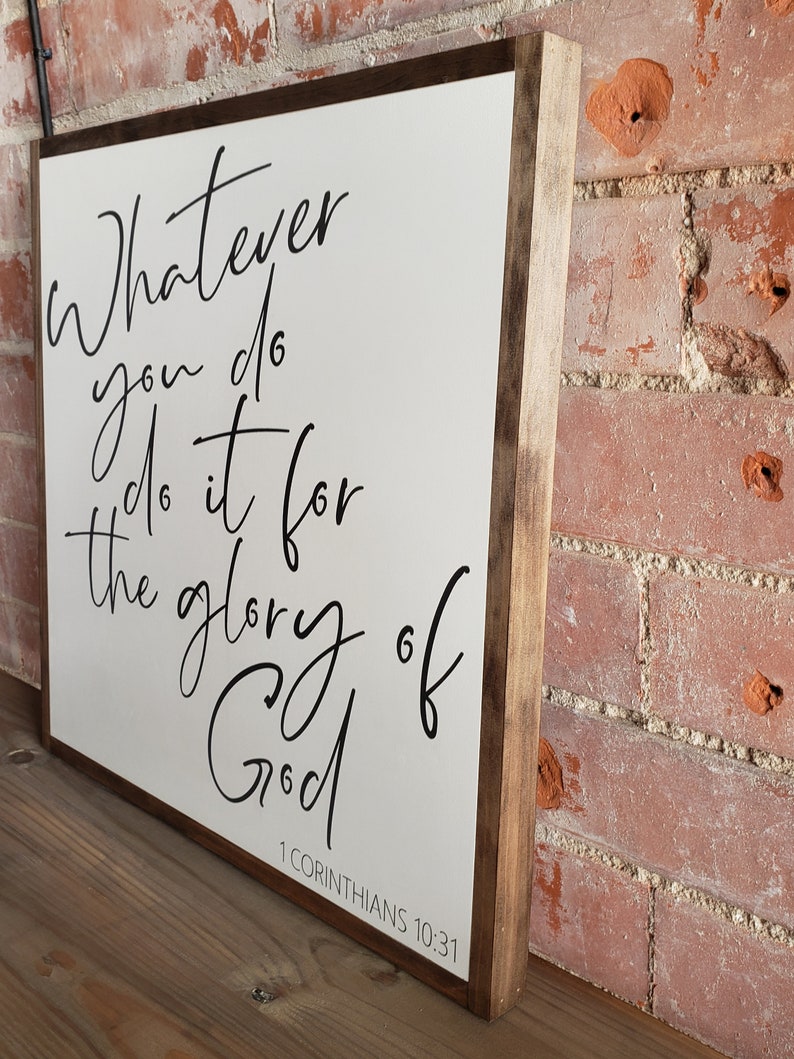 Whatever
you do
do it for
the glory of
God
1 CORINTHIANS 10:31